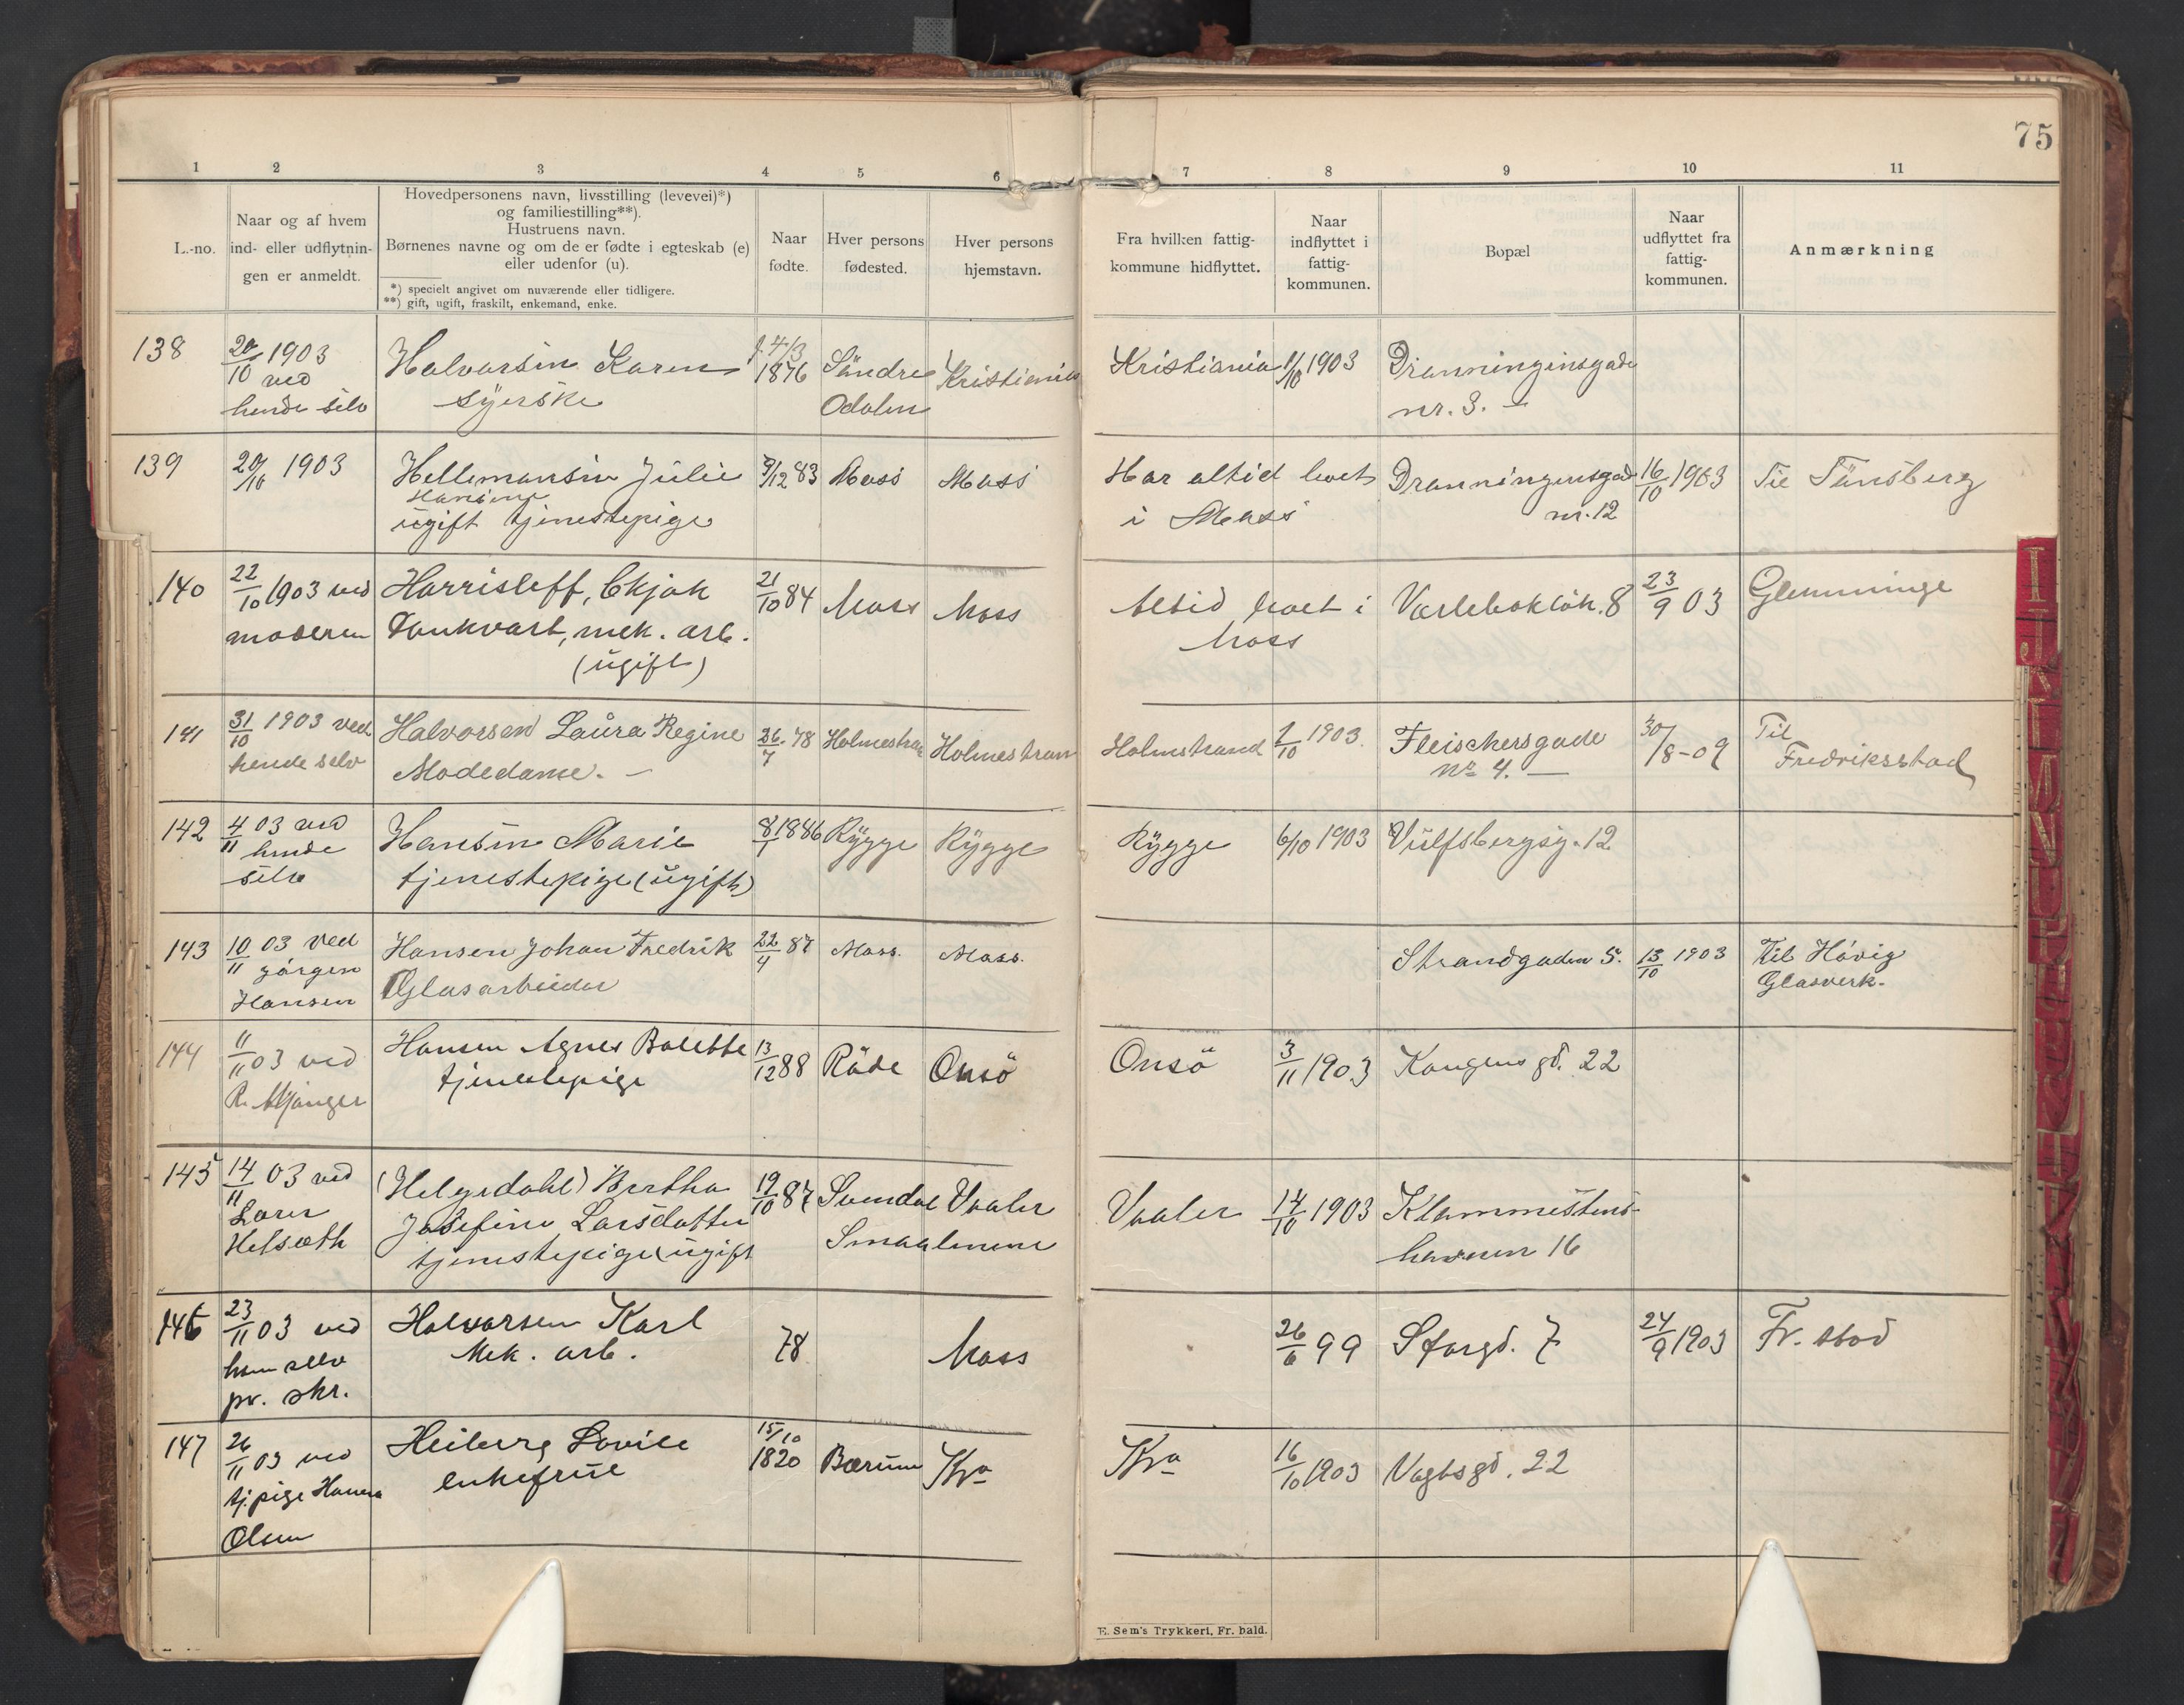 75
1 2 3 4 5 6 7 8 9 10 11
L.-no.
Naar og af hvem
ind- eller udflytnin-
gen er anmeldt.
Hovedpersonens navn, livsstilling (levevei)*)
og familiestilling**).
Hustruens navn.
Børnenes navne og om de er fødte i egteskab (e)
eller udenfor (u).
*) specielt angivet om nuværende eller tidligere.
**) gift, ugift, fraskilt, enkemand, enke.
Naar
fødte.
Hver persons
fødested.
Hver persons
hjemstavn.
Fra hvilken fattig-
kommune hidflyttet.
Naar
indflyttet i
fattig-
kommunen.
Bopæl
Naar
udflyttet fra
fattig-
kommunen.
Anmærkning
138
20/10 1903
ved
hende selv
Halvorsen Karen
syerske
f. 4/3
1876
Söndre
Odalen
Kristiania
Kristiania
1/10 1903
Dronningensgade
nr. 3. —
139
20/10 1903
Hellemansen Julie
Hansine
ugift tjenestepige
9/12 83
Moss
Moss
Har altid boet
i Moss
Dronningensgade
nr. 12
16/10 1903
Til Tönsberg
140
22/10 1903 ved
moderen
Harrisleff,
Tankvart, mek. arb.
(ugift)
21/10 84
Moss
Moss
Altid boet i
Moss
Varlebaklök. 8
23/9 03
Glemminge
141
31/10 1903 ved
hende selv
Halvorsen Laura Regine
Modedame. —
26/7 78
Holmestrand
Holmestrand
Holmstrand
1903.
Fleischersgade
No 4. —
30/8-09
Til
Fredriksstad
142
4/11 03 ved
hende
selv
Hansen Marie
tjenestepige (ugift)
8/1 1886
Rygge
Rygge
Rygge
6/10 1903
Vulfsbergsg. 12
143
10/11 03 ved
Jörgen
Hansen
Hansen Johan Fredrik
Glasarbeider
22/4 87
Moss.
Moss.
Strandgaden 5.
13/10 1903
Til Hövig
Glasverk.
144
11/11 03 ved
R. Mjanger
Hansen Agnes Bolette
tjenestepige
13/12 88
Råde
Onsö
Onsö
3/11 1903
Kongens gd. 22
145
14/11 03 ved
Lars
Helsæth
(Helgedahl) Bertha
Josefine Larsdatter
tjenestepige (ugift
19/10 87
Svendal
Smaalenene
Vaaler
Vaaler
14/10 1903
Klommestens-
havnen 16
146
23/11 03 ved
ham selv
pr. skr.
Halvorsen Karl
Mek. arb.
78
Moss
26/6 99
Storgd. 7
24/9 1903
Fr. stad
147
26/11 03 ved
tj.pige Hanna
Olsen
Heiberg Lovise
enkefrue
15/10
1820
Bærum
Kra
Kra
16/10 1903
Vogtsgd. 22
E. Sem's Trykkeri, Fr. hald.